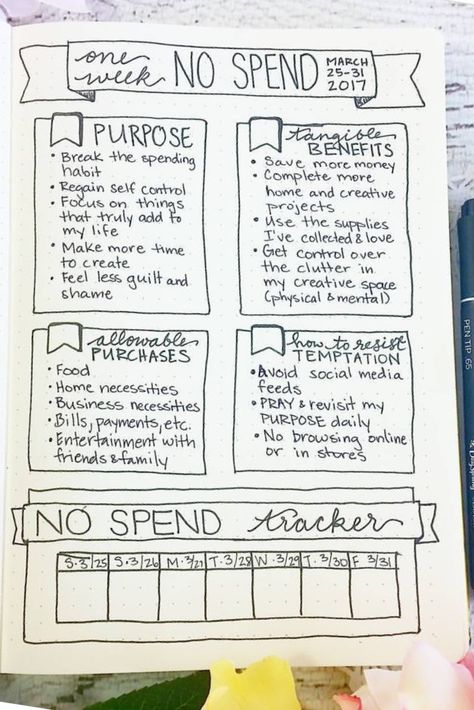 one week NO SPEND MARCH 25-31 2017
PURPOSE
• Break the spending
habit
• Regain self control
• Focus on things
that truly add to
my life
• Make more time
to create
• Feel less guilt and
shame
tangible
BENEFITS
• Save more money
• Complete more
home and creative
projects
• Use the supplies
I've collected & love
• Get control over
the clutter in
my creative space
(physical & mental)
allowable
PURCHASES
• Food
• Home necessities
• Business necessities
• Bills, payments, etc.
• Entertainment with
friends & family
how to resist
TEMPTATION
• Avoid social media
feeds
• PRAY & revisit my
PURPOSE daily
• No browsing online
or in stores
NO SPEND tracker
S.3/25 S.3/26 M.3/27 T.3/28 W.3/29 T.3/30 F 3/31
PEN TIP .65